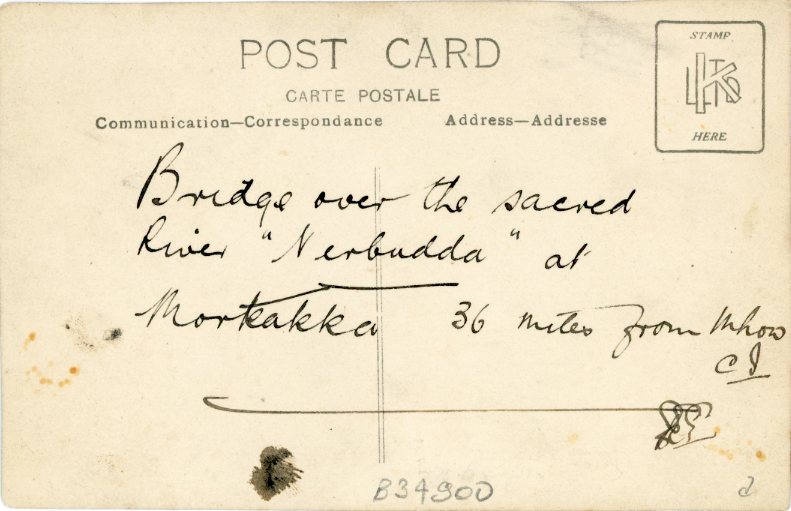 POST CARD
CARTE POSTALE
Communication—Correspondance Address—Addresse
STAMP
HERE
Bridge over the sacred
River "Nerbudda" at
Mortakka 36 miles from Mhow
C I
B34900